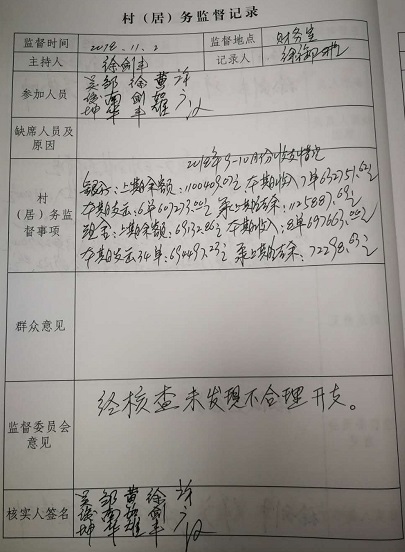 村（居）务监督记录
监督时间 2018.11.2 监督地点 财务室
主持人 徐剑丰 记录人
参加人员 吴 邹 徐 黄 许
南 剑 超 广
坤 华 丰
缺席人员及原因
村（居）务监督事项
2018年9-10月份收支情况
银行：上期余额：1100409.07元 本期收入7单632751.62元
本期支出：6单607273.00元 累上期结余：1125887.69元
现金：上期余额：69132.86元 本期收入：8单697663.00元
本期支出34单：694497.23元 累上期结余：72298.63元
群众意见
监督委员会意见
经核查未发现不合理开支。
核实人签名
吴 邹 黄 徐 许
南 超 剑 广
坤 华 丰